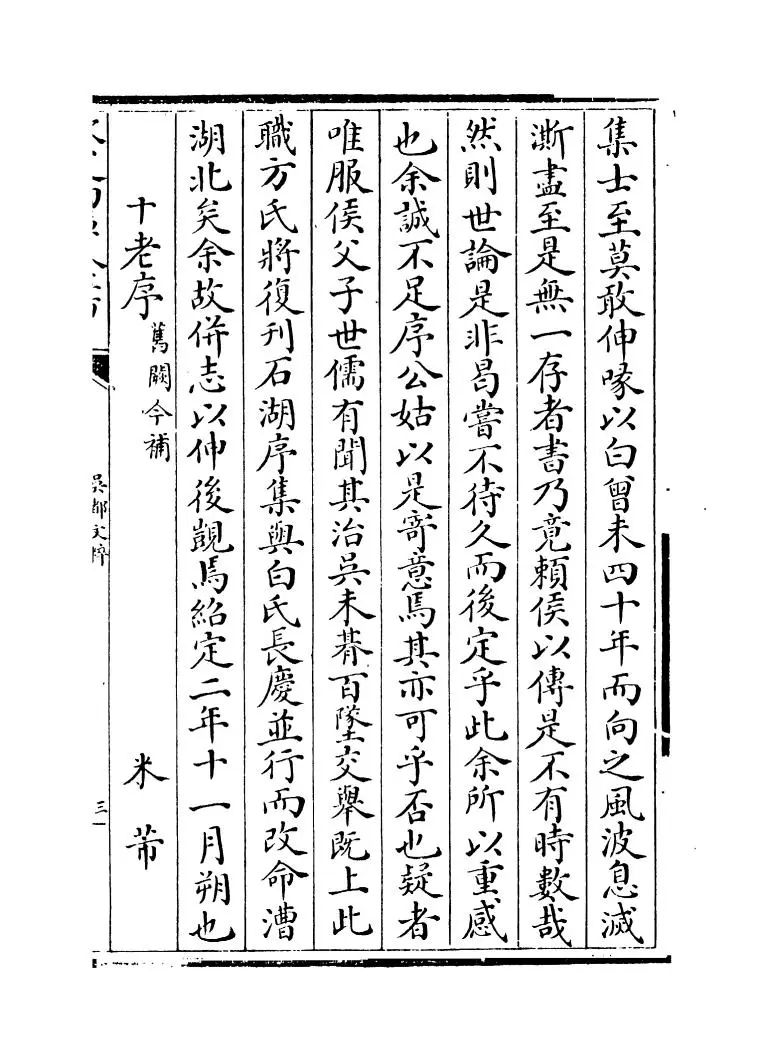 集士至莫敢伸喙以白曾未四十年而向之風波息滅
澌盡至是無一存者書乃竟頼侯以傳是不有時數哉
然則世論是非曷嘗不待久而後定乎此余所以重感
也余誠不足序公姑以是寄意焉其亦可乎否也疑者
唯服侯父子世儒有聞其治吳未朞百墜交舉既上此
職方氏將復刊石湖序集與白氏長慶並行而改命漕
湖北矣余故併志以伸後覬焉紹定二年十一月朔也
十老序 舊闕今補 米芾
吳都文粹
三